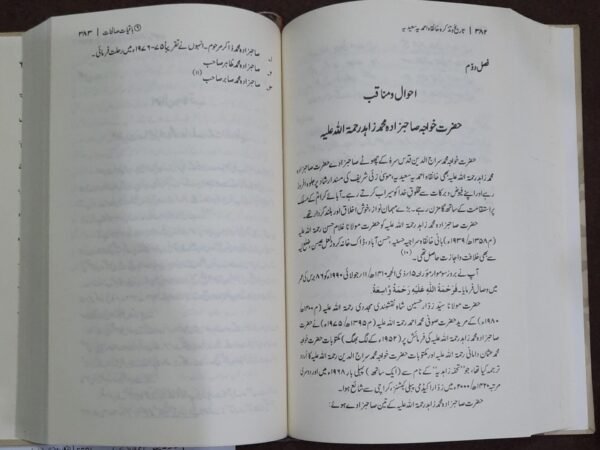 ۳۸۲ | تاریخ و تذکرہ خانقاہ احمدیہ سعیدیہ
فصل دوم
احوال و مناقب
حضرت خواجہ صاحبزادہ محمد زاہد رحمۃ اللہ علیہ
حضرت خواجہ محمد سراج الدین قدس سرہٗ کے چھوٹے صاحبزادے حضرت صاحبزادہ
محمد زاہد رحمۃ اللہ علیہ بھی خانقاہ احمدیہ سعیدیہ، موسیٰ زئی شریف کی مسند ارشاد پر جلوہ افروز
رہے اور اپنے فیوض و برکات سے مخلوقِ خدا کو سیراب کرتے رہے۔ آبائے کرام کے مسلک
پر استقامت کے ساتھ گامزن رہے۔ بڑے مہمان نواز، خوش اخلاق اور بلند کردار تھے۔
حضرت صاحبزادہ محمد زاہد رحمۃ اللہ علیہ کو حضرت مولانا غلام حسن رحمۃ اللہ علیہ
(م ۱۳۵۸ھ/۱۹۳۹ء) بانی خانقاہ سراجیہ حسنیہ، حسن آباد، ڈاک خانہ کروڑ لعل عیسن، ضلع لیہ
سے بھی خلافت و اجازت حاصل تھی۔ (۱۰)
آپ نے بروز سوموار مؤرخہ ۱۵ ذی الحجہ ۱۴۱۰ھ/۱۱ جولائی ۱۹۹۰ء کو ۸۶ برس کی عمر
میں وصال فرمایا۔ فَرَحْمَةُ اللّٰهِ عَلَيْهِ رَحْمَةً وَّاسِعَةً
حضرت مولانا سید زوار حسین شاہ نقشبندی مجددی رحمۃ اللہ علیہ (م ۱۴۰۰ھ/
۱۹۸۰ء) کے مرید حضرت صوفی محمد احمد رحمۃ اللہ علیہ (م ۱۳۹۵ھ/۱۹۷۵ء) نے حضرت
صاحبزادہ محمد زاہد رحمۃ اللہ علیہ کی فرمائش پر (۱۹۵۲ء کے لگ بھگ) مکتوبات حضرت خواجہ
محمد عثمان دامانی رحمۃ اللہ علیہ اور مکتوبات حضرت خواجہ محمد سراج الدین رحمۃ اللہ علیہ کا اردو
ترجمہ کیا تھا، جو "تحفہ زاہدیہ" کے نام سے (ایک ساتھ) پہلی بار ۱۹۶۸ء میں اور دوسری
مرتبہ ۱۴۲۱ھ/۲۰۰۰ء میں زوار اکیڈمی پبلی کیشنز، کراچی سے شائع ہوا۔
حضرت صاحبزادہ محمد زاہد رحمۃ اللہ علیہ کے تین صاحبزادے ہوئے:
باقیات صالحات | ۳۸۳
صاحبزادہ محمد ذاکر مرحوم۔ انہوں نے تقریباً ۷۵-۱۹۷۶ء میں رحلت فرمائی۔
صاحبزادہ محمد طاہر صاحب
صاحبزادہ محمد صابر صاحب (۱۱)